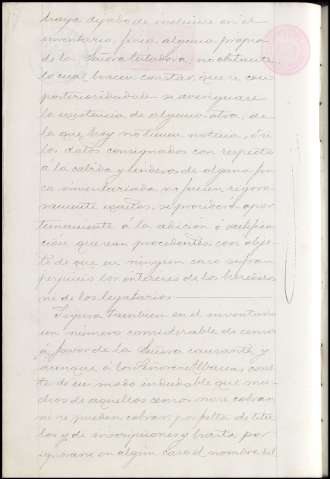 haya dejado de incluirse en el
inventario finca alguna propia
de la Señora testadora, no obstante
lo cual hacen constar, que si con
posterioridad se averiguase
la existencia de alguna otra, de
la que hoy no tienen noticia, ó si
los datos consignados con respecto
á la cabida y linderos de alguna fin-
ca inventariada no fuesen rigoro-
samente exactos, se procederá opor-
tunamente á la adición ó rectifica-
ción que sean procedentes con obje-
to de que en ningún caso sufran
perjuicio los intereses de los herederos
ni de los legatarios
Figura tambien en el inventario
un número considerable de censos
á favor de la Señora causante y
aunque á los Señores Albaceas cons-
te de un modo indudable que mu-
chos de aquellos censos no se cobran
ni se pueden cobrar por falta de títu-
los y de inscripciones y hasta por
ignorarse en algún caso el nombre del